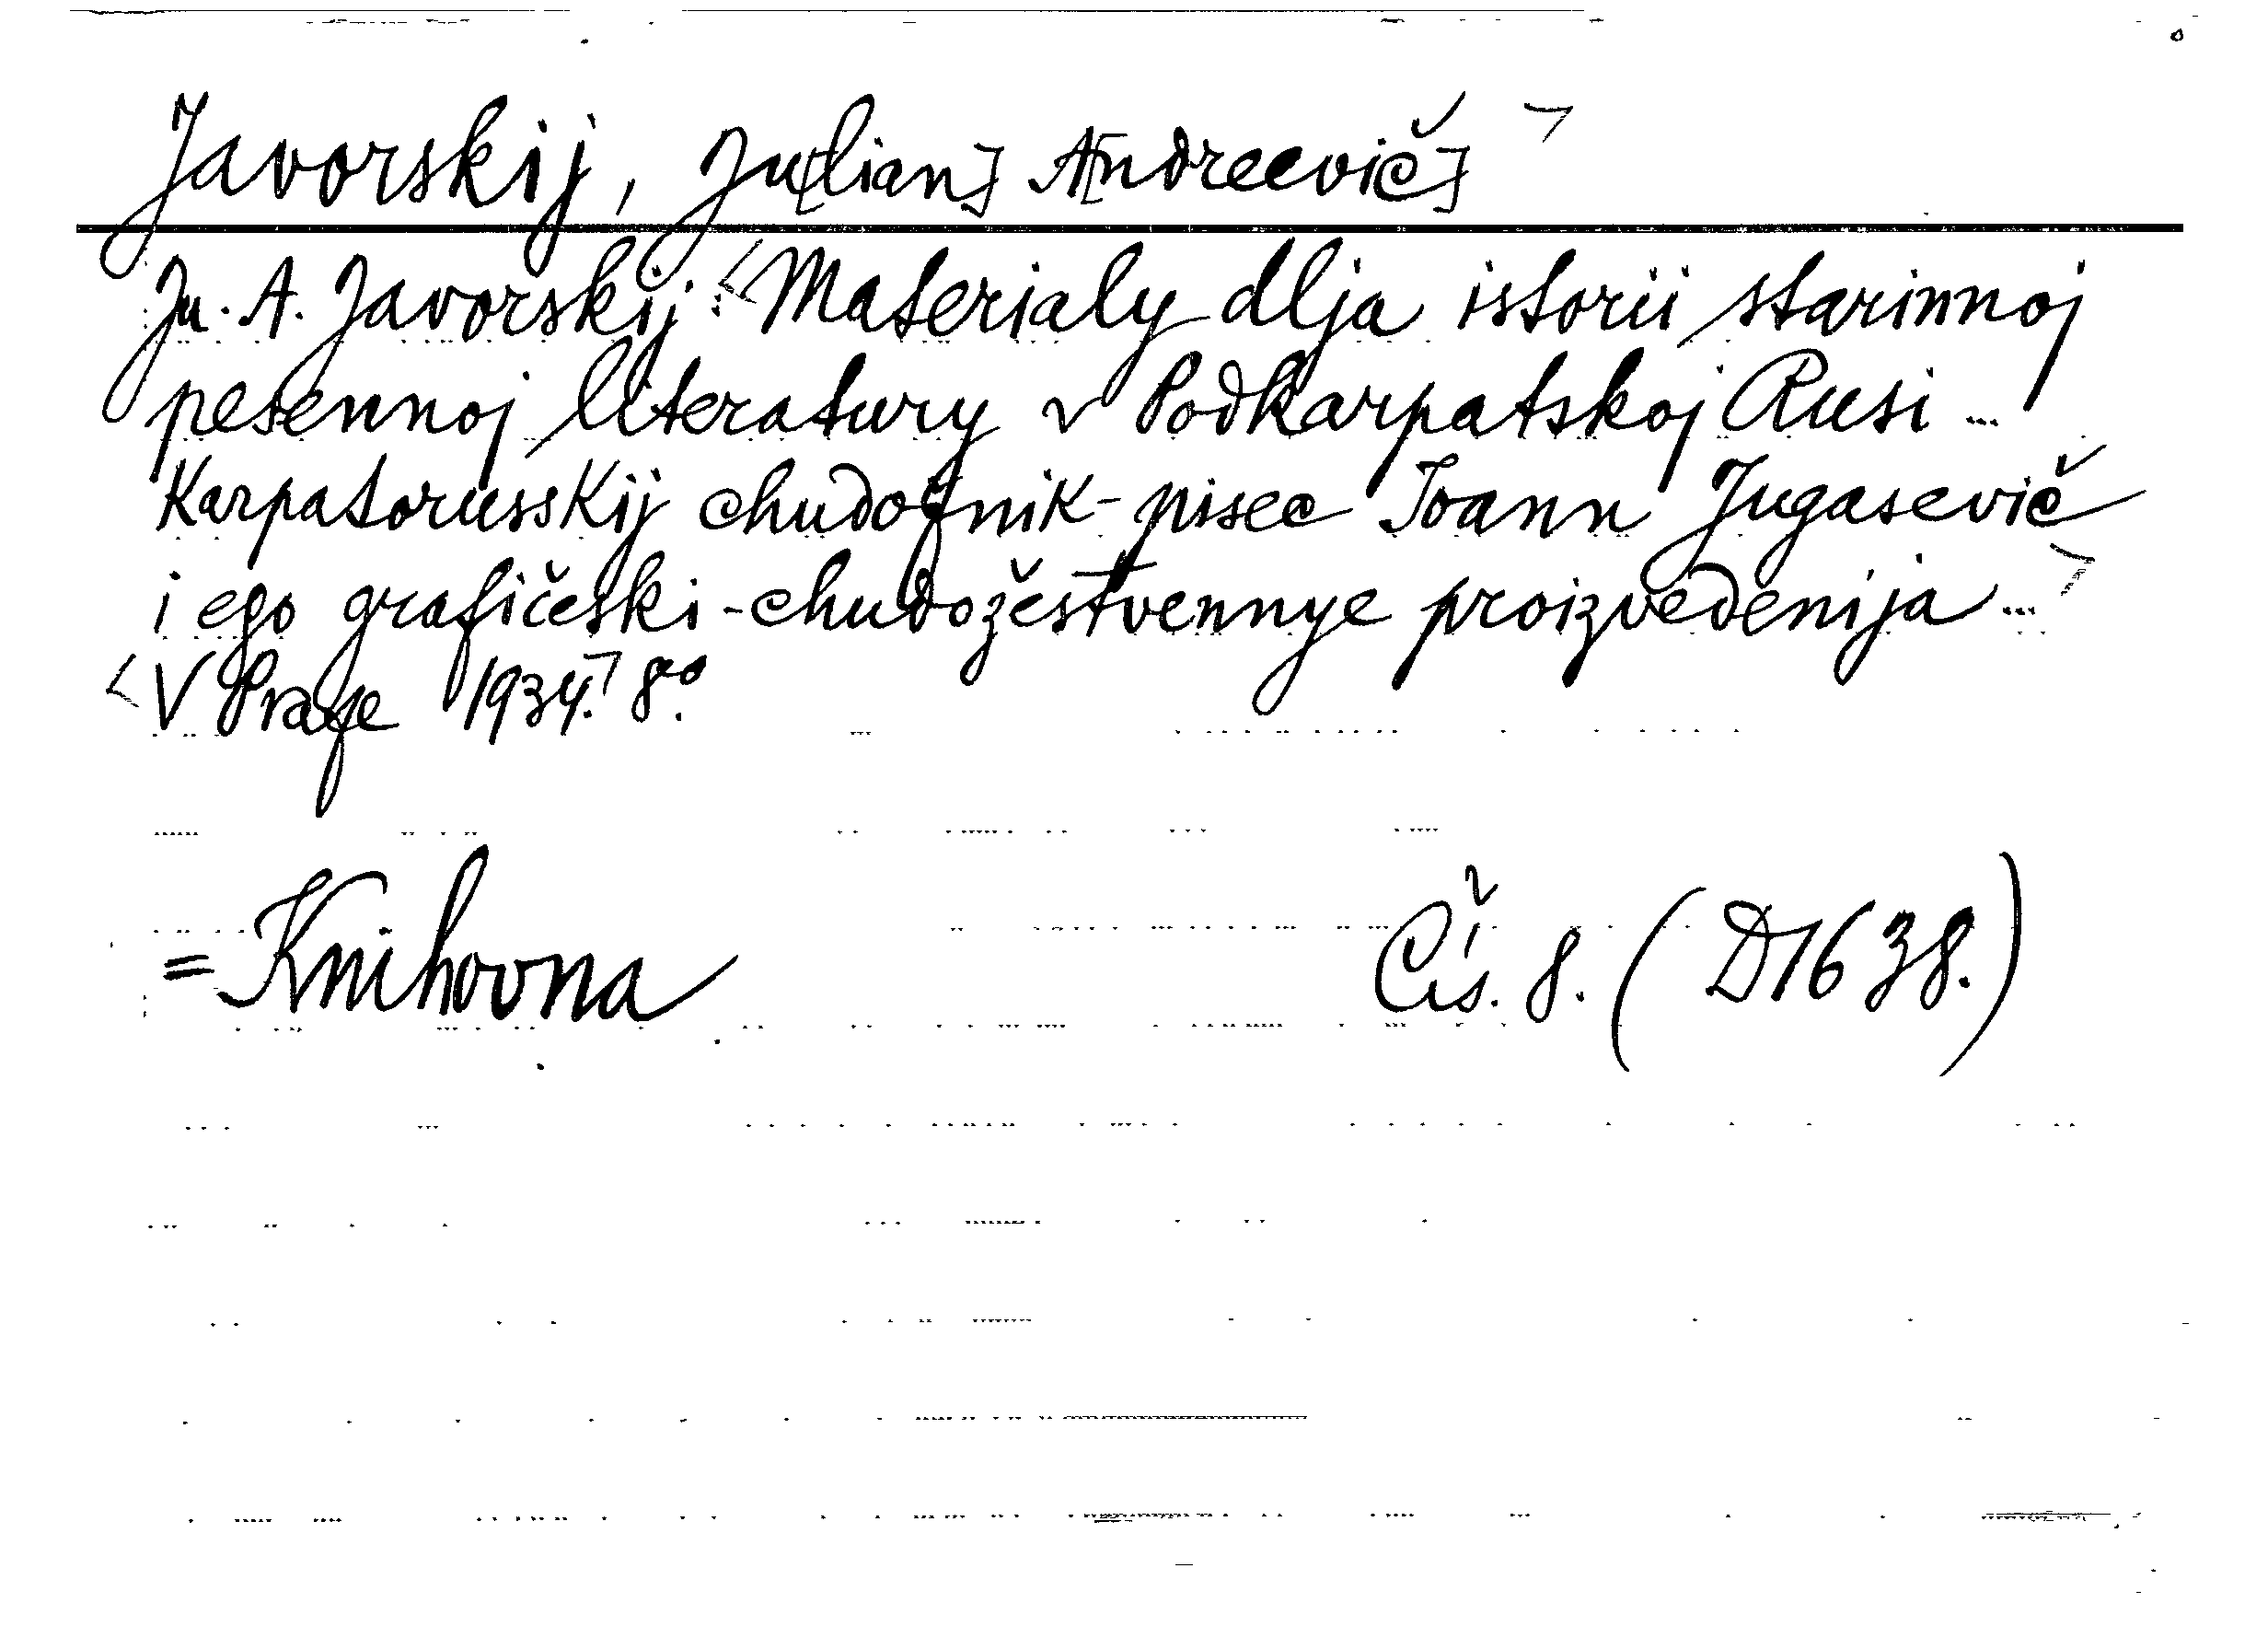 Javorskij, Ju[lian] A[ndreevič]
Ju. A. Javorskij: Materialy dlja istorii starinnoj
pesennoj literatury v Podkarpatskoj Rusi ...
Karpatorusskij chudožnik-pisec Ioann Jugasevič
i ego grafičeski-chudožestvennye proizvedenija ...
V Prage 1934. 8°.
= Knihovna Čís. 8. (D1638.)